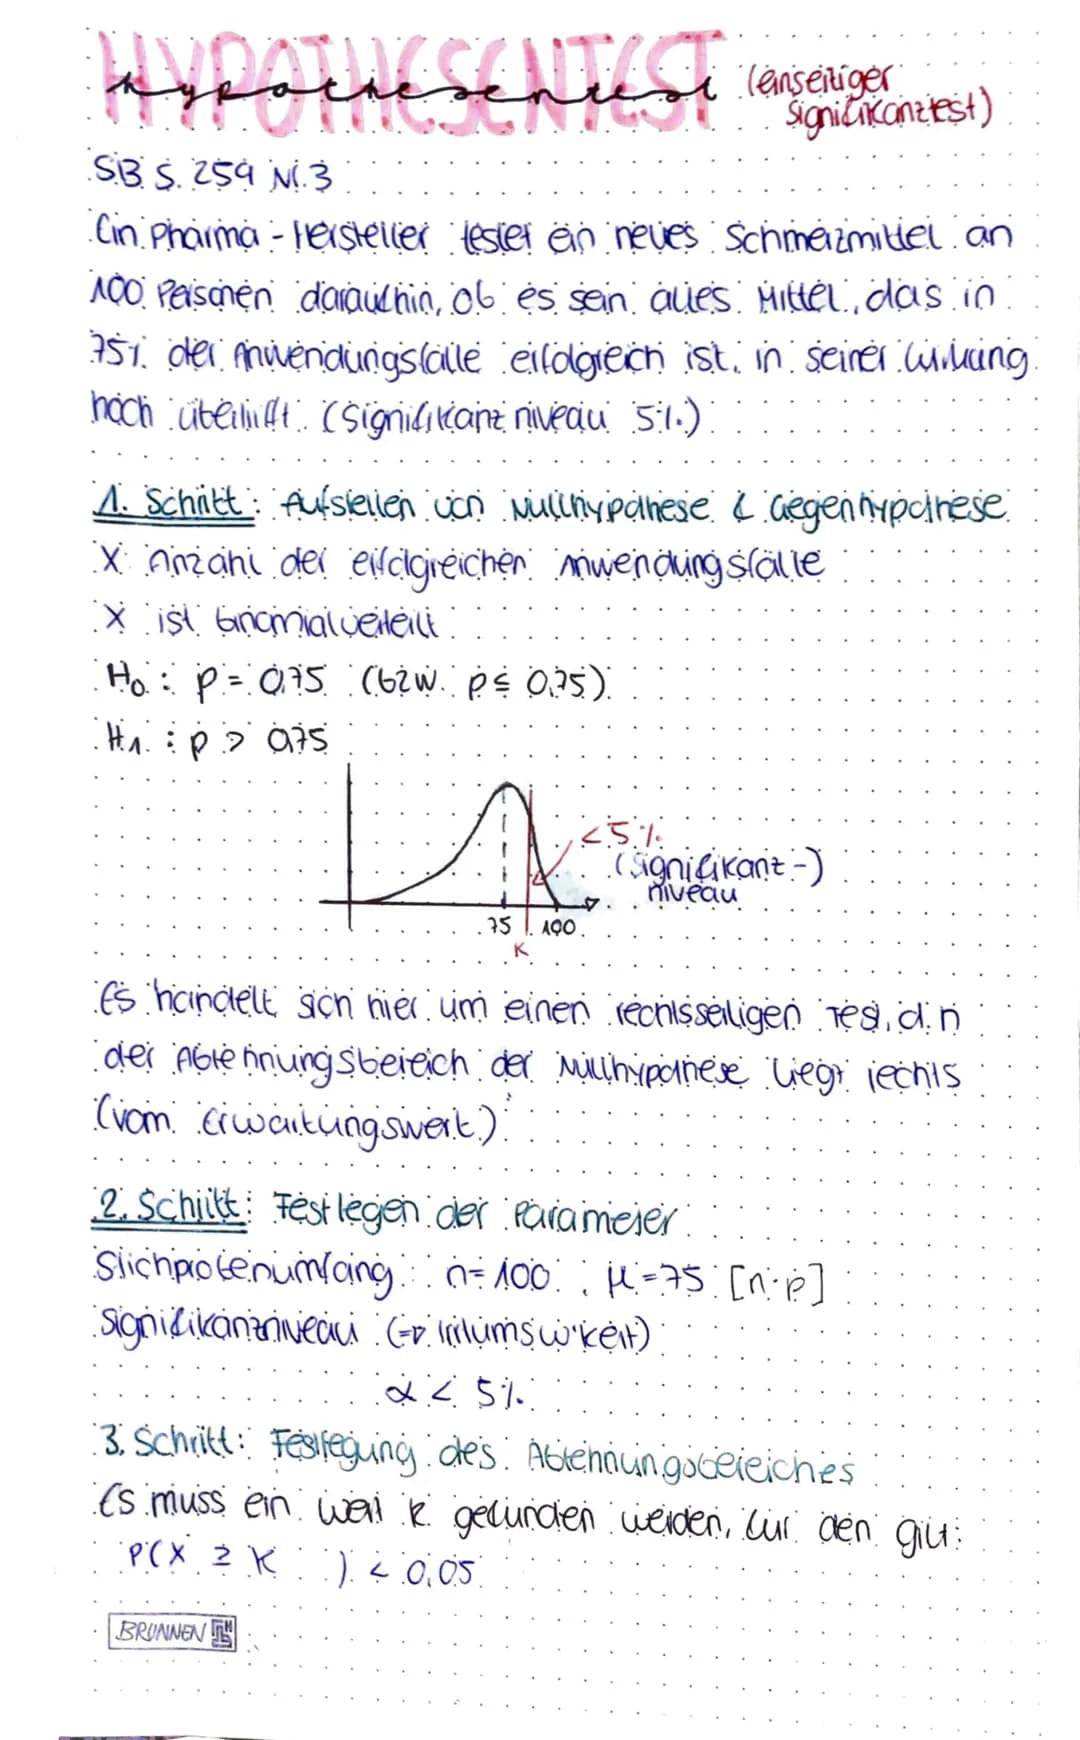 HYPOTHESENTEST
hypothesentest (einseitiger
Signifikanztest)
SB S. 259 Nr. 3
Ein Pharma - Hersteller testet ein neues Schmerzmittel an
100 Personen daraufhin, ob es sein altes Mittel, das in
75% der Anwendungsfälle erfolgreich ist, in seiner Wirkung
noch übertrifft. (Signifikanzniveau 5%)
1. Schritt: Aufstellen von Nullhypothese & Gegenhypothese
X: Anzahl der erfolgreichen Anwendungsfälle
X ist binomialverteilt
H₀: p = 0,75 (bzw. p ≤ 0,75)
H₁: p > 0,75
< 5%
(Signifikanz-)
niveau
75 100
K
Es handelt sich hier um einen rechtsseitigen Test, d.h
der Ablehnungsbereich der Nullhypothese liegt rechts
(vom Erwartungswert.)
2. Schritt: Festlegen der Parameter
Stichprobenumfang: n = 100 ; μ = 75 [n·p]
Signifikanzniveau (=> Irrtumsw'keit)
α < 5%
3. Schritt: Festlegung des Ablehnungsbereiches
Es muss ein Wert k gefunden werden, für den gilt:
P(X ≥ K ) < 0,05
BRUNNEN